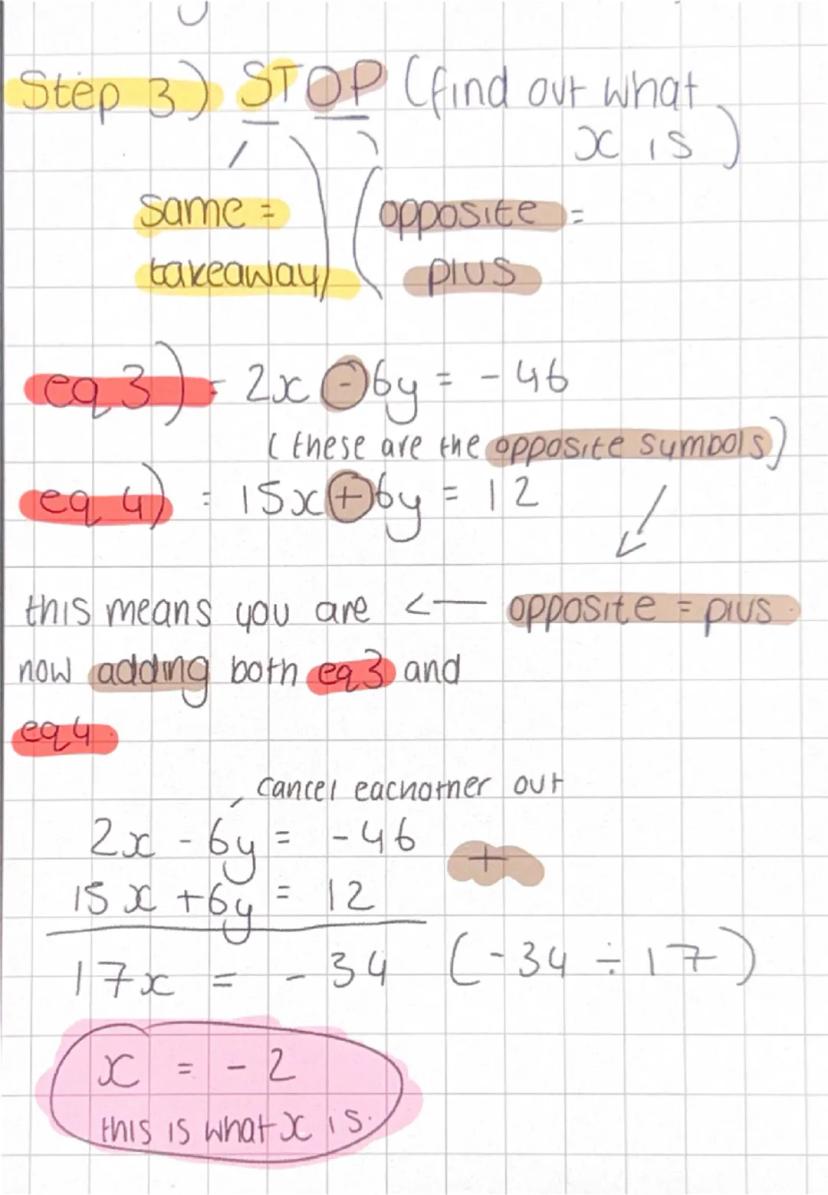 Step 3) STOP (find out what
x is)
same = opposite =
takeaway plus
eq 3) = 2x - 6y = -46
(these are the opposite symbols)
eq 4) = 15x + 6y = 12
this means you are <— opposite = plus
now adding both eq3 and
eq4.
cancel eachother out
2x - 6y = -46
+
15x + 6y = 12
17x = -34 (-34 ÷ 17)
x = -2
this is what x is.